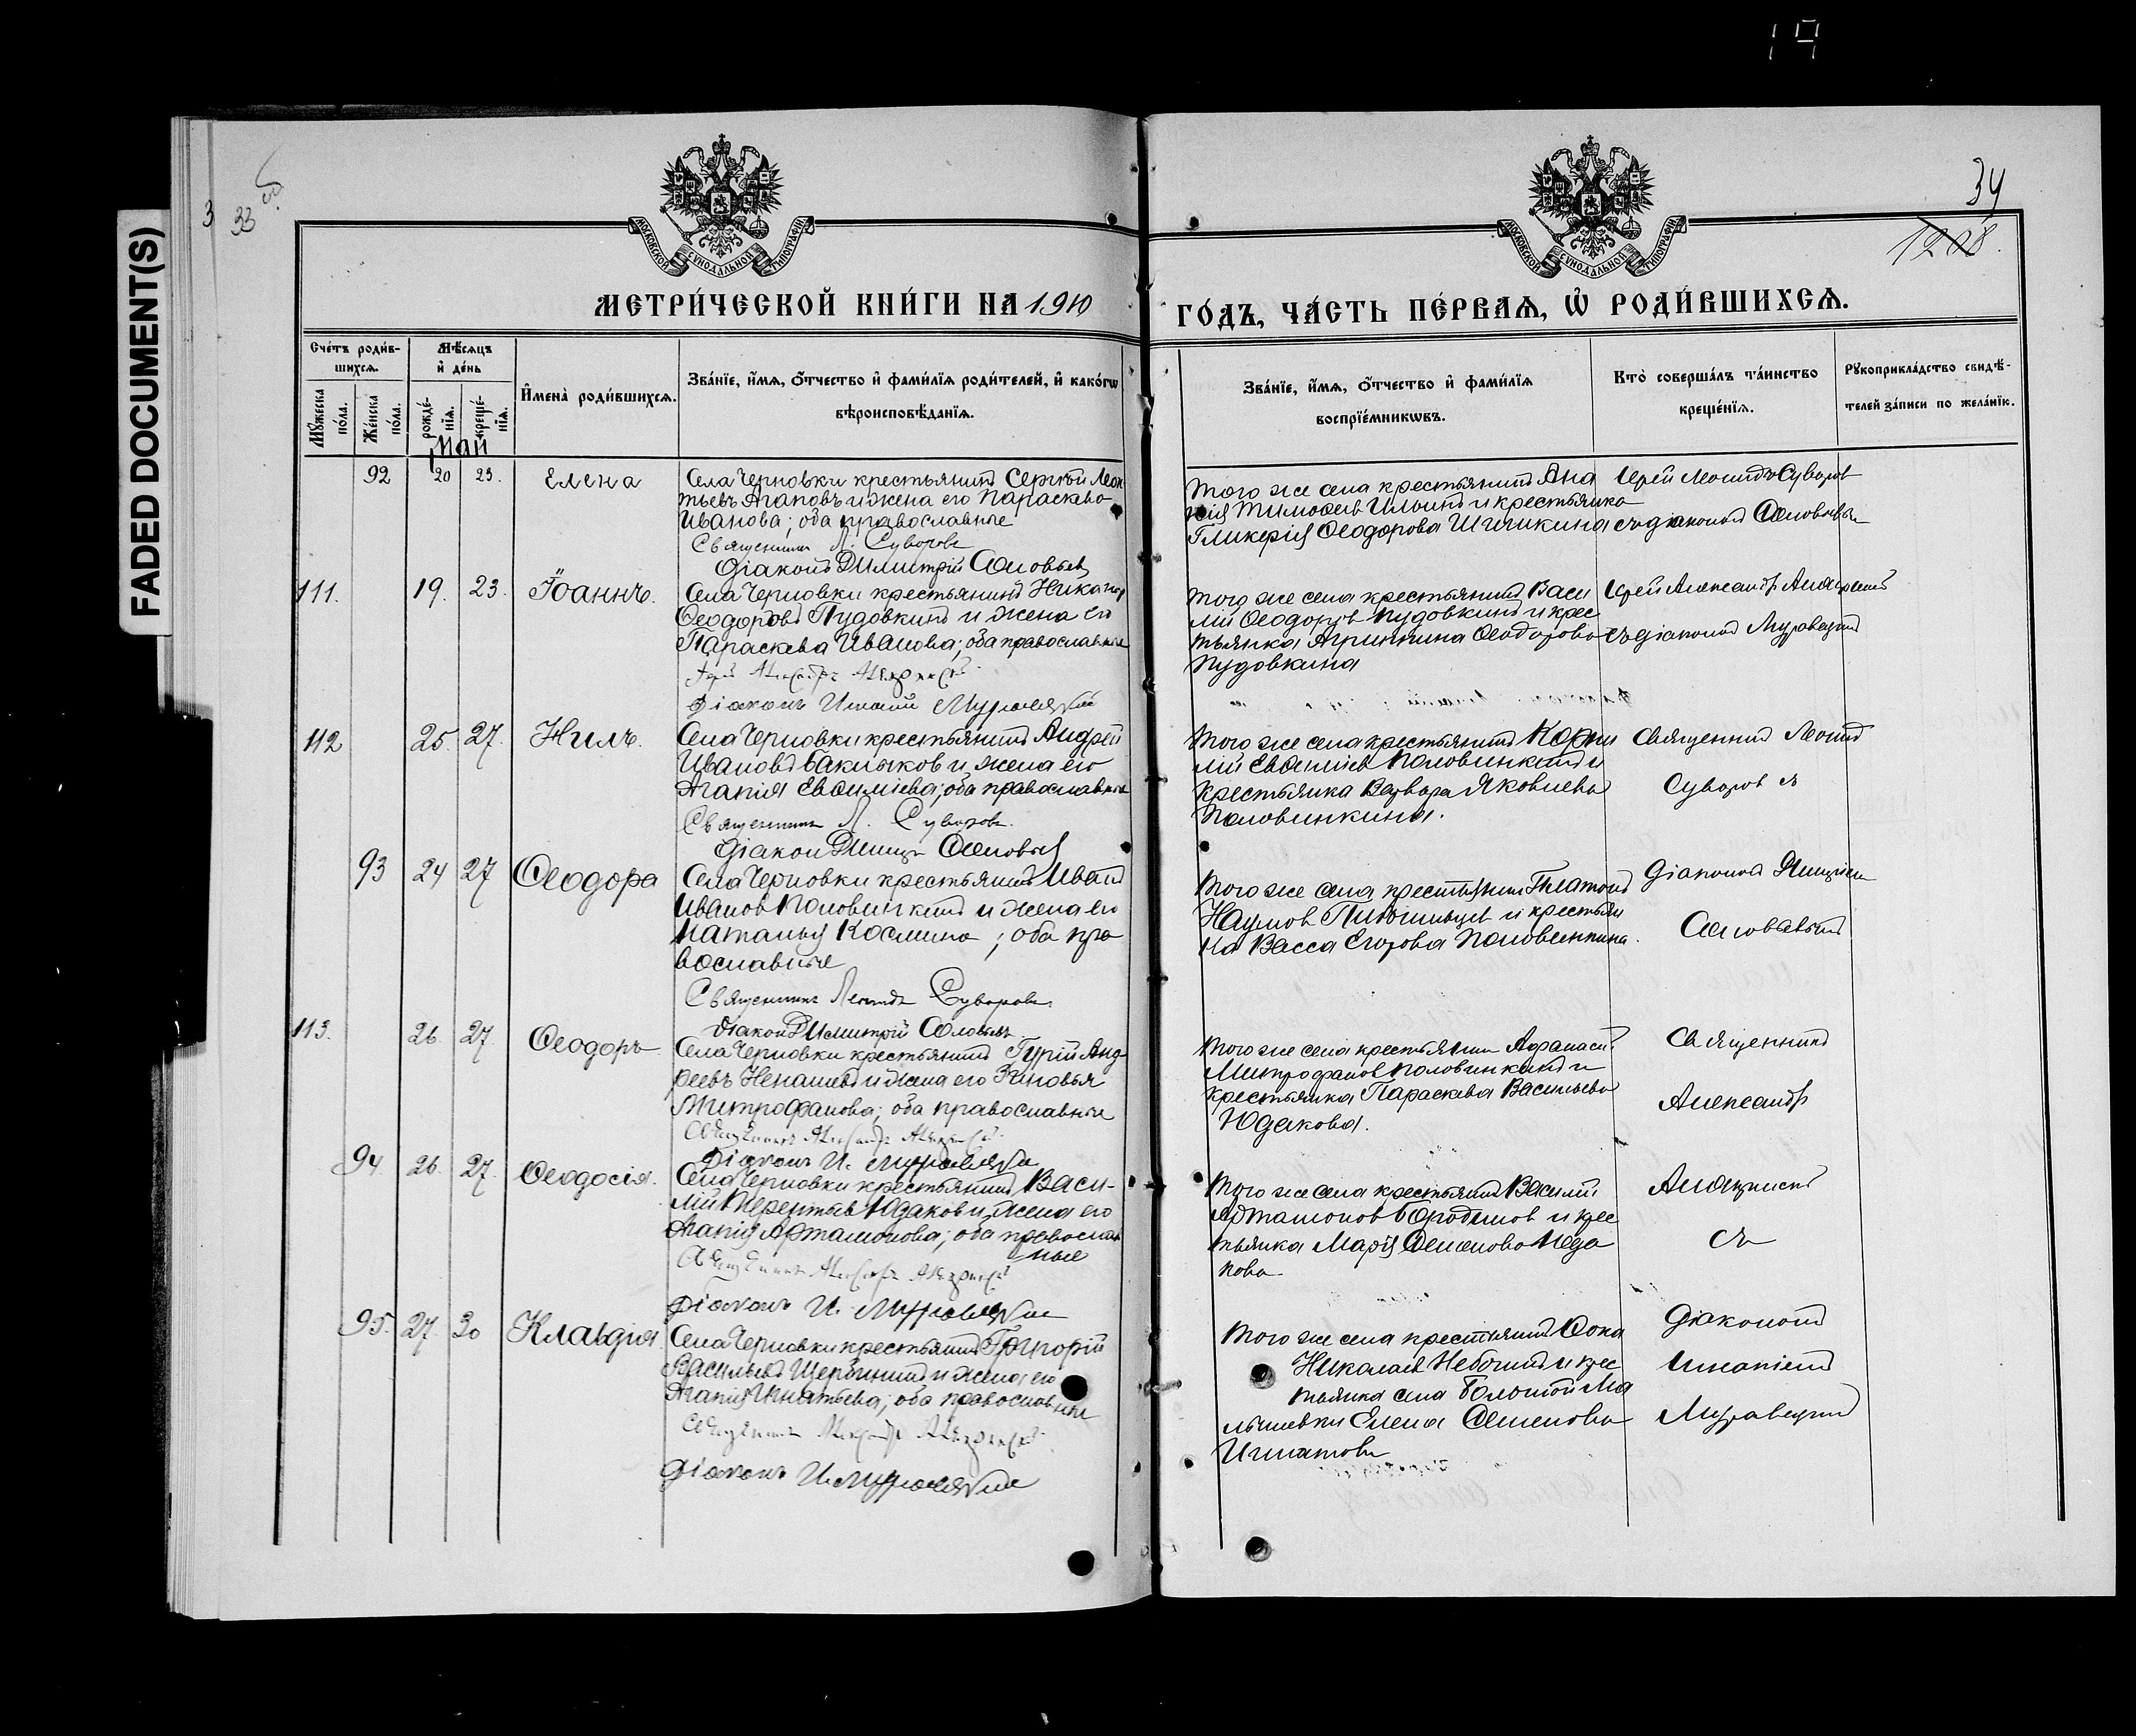 FADED DOCUMENT(S)
19
3
33 об.
34
1208.
МОСКОВСКОЙ СѴНОДАЛЬНОЙ ТИПОГРАФІИ
МОСКОВСКОЙ СѴНОДАЛЬНОЙ ТИПОГРАФІИ
МЕТРИ́ЧЕСКОЙ КНИ́ГИ НА 1910
ГО́ДЪ, ЧА́СТЬ ПЕ́РВАѦ, Ѡ҆ РОДИ́ВШИХСѦ.
Сче́тъ роди́в-
шихсѧ.
Мꙋ́жеска по́ла.
Же́нска по́ла.
Мѣ́сѧцъ
и҆ де́нь
рожде́-
нїѧ.
креще́-
нїѧ.
И҆мена̀ роди́вшихсѧ.
Зва́нїе, и҆́мѧ, ѻ҆́тчество и҆ фами́лїѧ роди́телей, и҆ како́гѡ
вѣроисповѣ́данїѧ.
Зва́нїе, и҆́мѧ, ѻ҆́тчество и҆ фами́лїѧ
воспрїе́мникѡвъ.
Кто̀ соверша́лъ та́инство
креще́нїѧ.
Рꙋкоприкла́дство свидѣ́-
телей за́писи по жела́нїю.
Май
92 20 23. Елена
Села Черновки крестьянинъ Сергѣй Леон
тьевъ Агаповъ и жена его Параскева
Иванова; оба православные
Священникъ Л. Суворовъ
Діаконъ Димитрій Соловьевъ
Того же села крестьянинъ Ана
нія Тимоѳеевъ Ильинъ и крестьянка
Гликерія Ѳеодорова Шишкина
Іерей Леонидъ Суворовъ
съ діакономъ Соловьевымъ
111. 19. 23. Іоаннъ.
Села Черновки крестьянинъ Никаноръ
Ѳеодоровъ Пудовкинъ и жена его
Параскева Иванова; оба православные
Іерей Александръ
Діаконъ Игнатій Муравецкій
Того же села крестьянинъ Васи
лій Ѳеодоровъ Пудовкинъ и крес
тьянка Агриппина Ѳеодорова
Пудовкина
Іерей Александръ
съ діакономъ Муравецкимъ
112 25. 27. Нилъ.
Села Черновки крестьянинъ Андрей
Ивановъ Баклыковъ и жена его
Агапія Евѳиміева; оба православные
Священникъ Л. Суворовъ.
Діаконъ Димитр. Соловьевъ
Того же села крестьянинъ Корни
лій Евѳиміевъ Половинкинъ и
крестьянка Варвара Яковлева
Половинкина.
Священникъ Леонид
Суворовъ съ
93 24 27 Ѳеодора
Села Черновки крестьянинъ Иванъ
Ивановъ Половинкинъ и жена его
Наталья Космина; оба пра
вославные
Священникъ Леонидъ Суворовъ.
Діаконъ Димитрій Соловьевъ
Того же села крестьянинъ Платонъ
Наумовъ и крестьян
ка Васса Егорова Половинкина.
Діакономъ Димитріем
Соловьевымъ
113. 26. 27. Ѳеодоръ
Села Черновки крестьянинъ Гурій Анд-
реевъ Ненашевъ и жена его Зиновья
Митрофанова; оба православные
Священникъ Александръ
Діаконъ И. Муравецкій
Того же села крестьянинъ Афанасій
Митрофановъ Половинкинъ и
крестьянка Параскева Васильева
Юдакова.
Священникъ
Александръ
94. 26. 27. Ѳеодосія.
Села Черновки крестьянинъ Васи-
лій Терентьевъ Юдаковъ и жена его
Агапія Артамонова; оба православ
ные
Священникъ Александръ
Діаконъ И. Муравецкій
Того же села крестьянинъ Василій
Артамоновъ Бородиновъ и крес
тьянка Марія Семенова Юда
кова
съ
95. 27. 30 Клавдія.
Села Черновки крестьянинъ Григорій
Васильевъ Щербининъ и жена его
Агапія Игнатьева; оба православные
Священникъ Александръ
Діаконъ И. Муравецкій
Того же села крестьянинъ Ѳока
Николаевъ и крес
тьянка села Большой Ма
лышевки Елена Семенова
Игнатова
Діакономъ
Игнатіемъ
Муравецкимъ